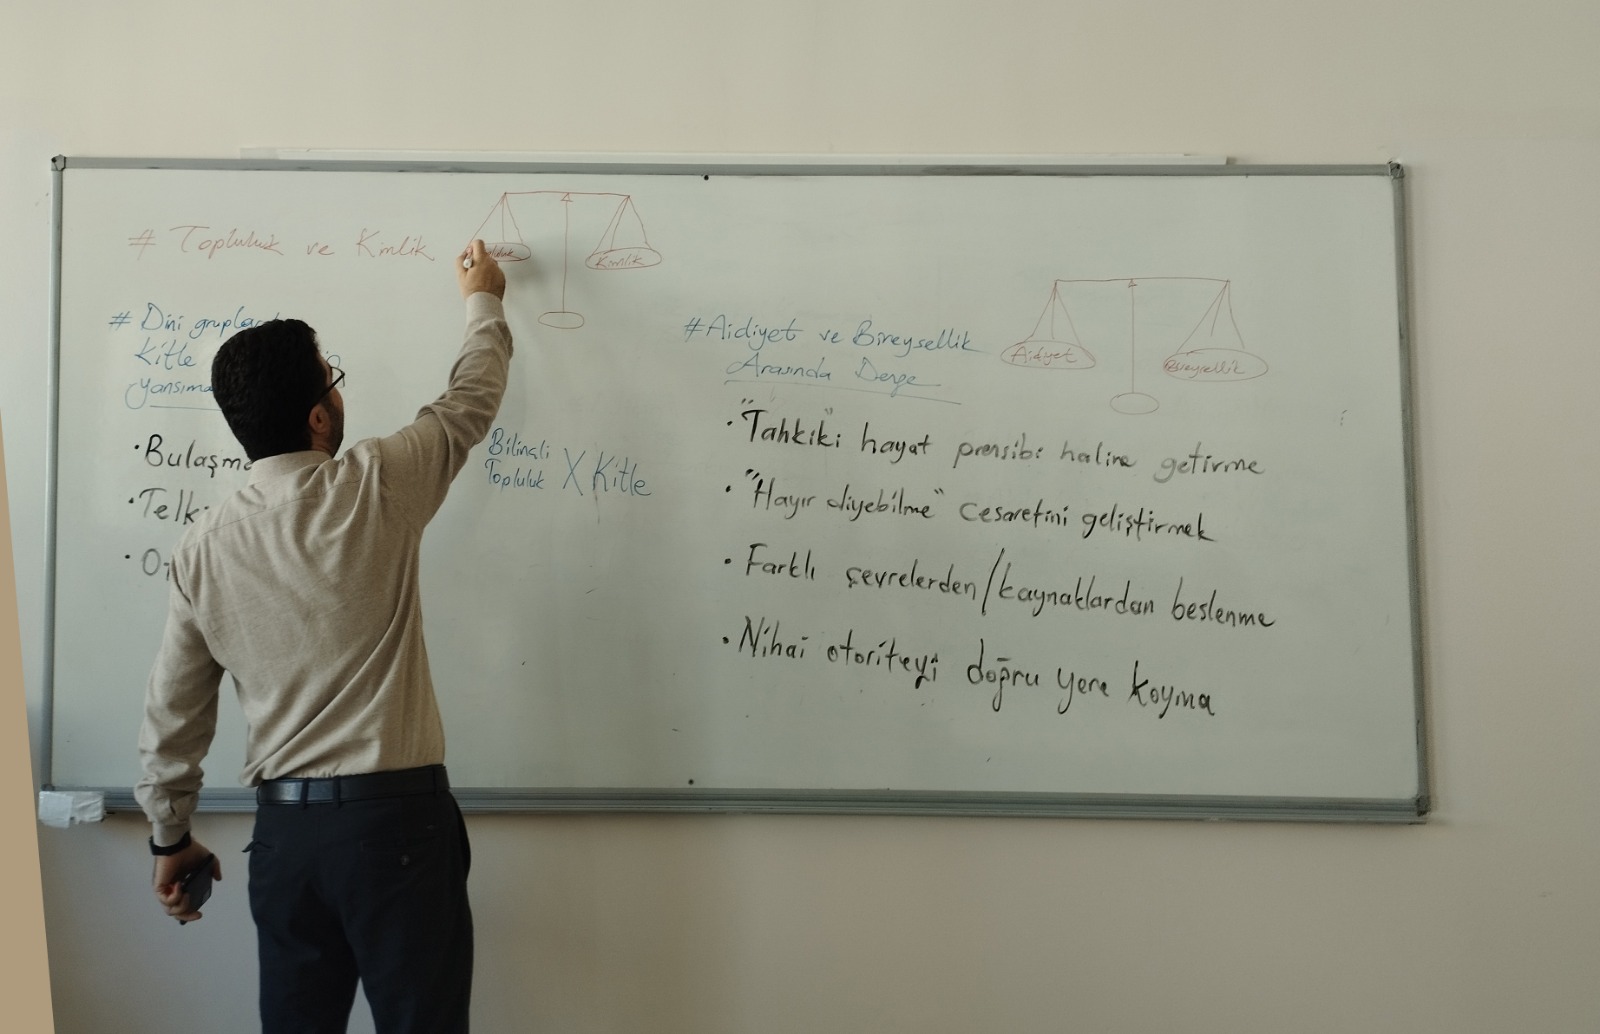 # Topluluk ve Kimlik
Kimlik
# Dini gruplar
Kitle
yansıma
• Bulaşma
• Telki
Bilinçli
Topluluk X Kitle
# Aidiyet ve Bireysellik
Arasında Denge
Aidiyet
Bireysellik
• "Tahkiki" hayat prensibi haline getirme
• "Hayır diyebilme" cesaretini geliştirmek
• Farklı çevrelerden/kaynaklardan beslenme
• Nihai otoriteyi doğru yere koyma